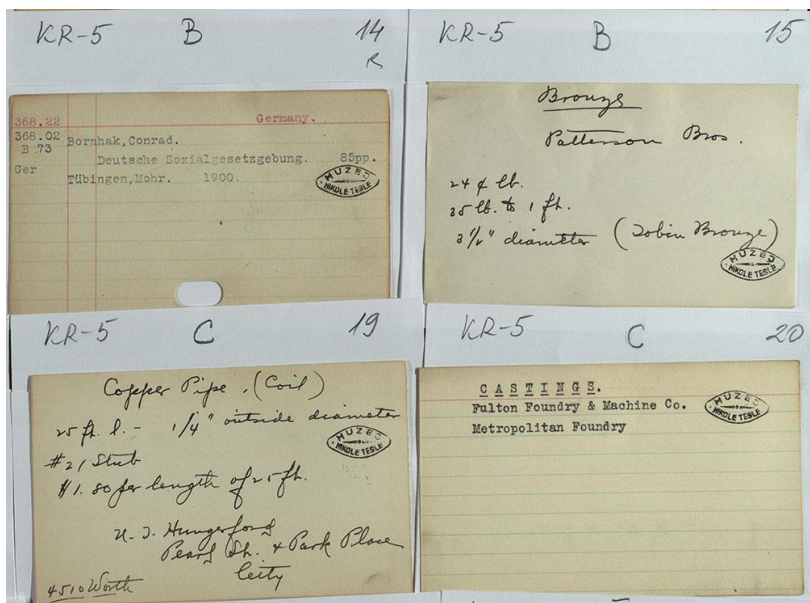 KR-5 B 14
R
368.22 Germany.
368.02
B 73 Bornhak, Conrad.
Deutsche Sozialgesetzgebung. 85pp.
Ger
Tübingen, Mohr. 1900.
MUZEJ
NIKOLE TESLE
KR-5 B 15
Bronze
Patterson Bros.
24 ¢ lb.
35 lb. to 1 ft.
3 1/2" diameter (Tobin Bronze)
MUZEJ
NIKOLE TESLE
KR-5 C 19
Copper Pipe, (Coil)
25 ft. l. - 1/4" outside diameter
#21 Stub
$1.80 per length of 25 ft.
U. T. Hungerford
Pearl St. + Park Place
City
4510 Worth
MUZEJ
NIKOLE TESLE
KR-5 C 20
CASTINGS.
Fulton Foundry & Machine Co.
Metropolitan Foundry
MUZEJ
NIKOLE TESLE